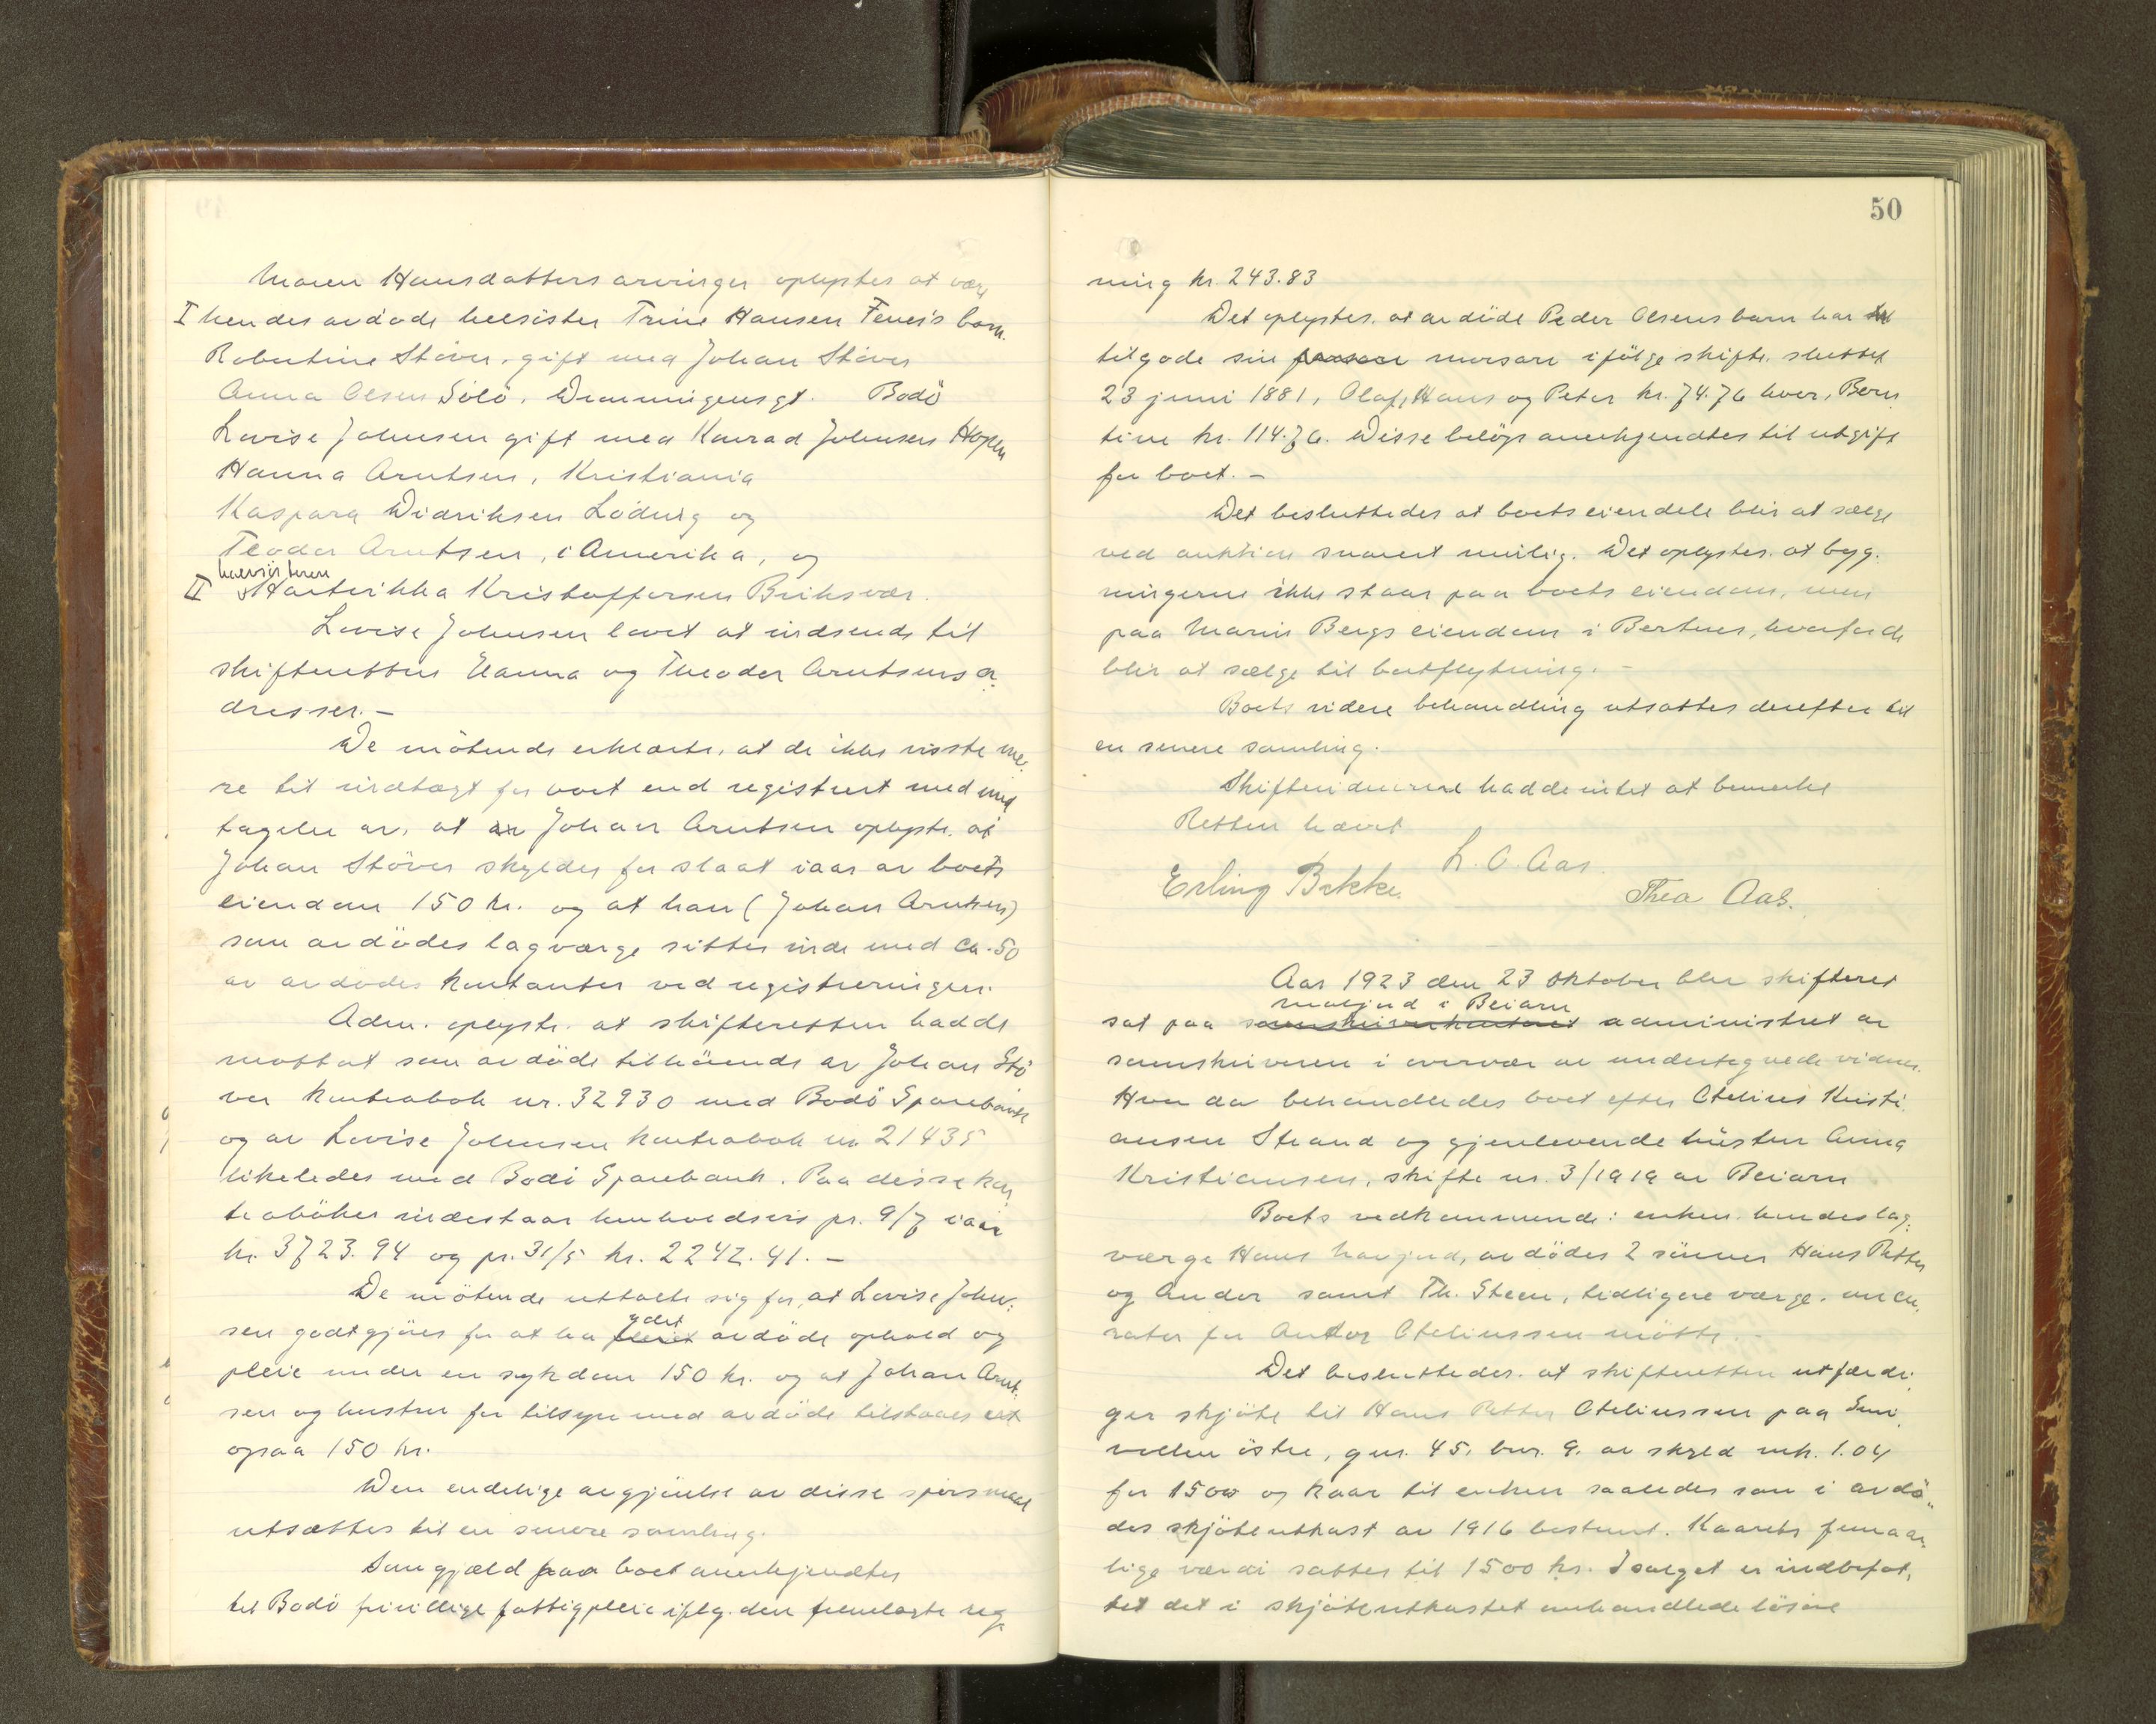 Maren Hansdatters arvinger oplystes at være
I hendes avdøde helsøster Trine Hansen Feneis barn.
Robertine Støver, gift med Johan Støver
Anna Olsen Sölö, Dronningensgt. Bodö
Lovise Johnsen gift med Konrad Johnsen Hopen
Hanna Arntsen, Kristiania
Kaspara Didriksen Löding og
Teodor Arntsen, i Amerika, og
halvsösteren
II Hartvikka Kristoffersen Briksvær.
Lovise Johnsen lovet at indsende til
skifteretten Hanna og Theodor Arntsens a
dresser.-
De mötende erklærte, at de ikke visste me
re til indtægt for boet end registrert med und
tagelse av, at av Johan Arntsen oplyste at
Johan Stöver skylder for slaat iaar av boets
eiendom 150 kr. og at han (Johan Arntsen)
som avdödes lagværge sitter inde med ca. 50
av avdödes kontanter ved registreringen.
Adm. oplyste at skifteretten hadde
mottat som avdöde tilhörende av Johan Stö
ver kontrabok nr. 32930 med Bodö Sparebank
og av Lovise Johnsen kontrabok nr 21435
likeledes med Bodö Sparebank. Paa disse kon
traböker indestaar henholdsvis pr. 9/7 iaar
kr. 3723.94 og pr. 31/5 kr. 2242.41.-
De mötende uttalte sig for, at Lovise John-
ydet
sen godtgjöres for at ha pleiet avdöde ophold og
pleie under en sykdom 150 kr. og at Johan Arnt-
sen og hustru for tilsyn med avdöde tilstaaes
ogsaa 150 kr.
Den endelige avgjörelse av disse spörsmaal
utsættes til en senere samling.
Som gjæld paa boet anerkjendtes
til Bodö frivillige fattigpleie iflg. den fremlagte reg
50
ning kr. 243.83
Det oplystes at avdöde Peder Olsens barn har
tilgode sin morsarv ifölge skifte sluttet
23 juni 1881, Olaf, Hans og Peter kr. 74.76 hver, Bern
tine kr. 114.76. Disse belöp anerkjendtes til utgift
for boet.-
Det besluttedes at boets eiendele blir at sælge
ved auktion snarest mulig. Det oplystes at byg-
ningerne ikke staar paa boets eiendom, men
paa Marius Bergs eiendom i Bertnes, hvorfor de
blir at sælge til bortflytning.-
Boets videre behandling utsattes derefter til
en senere samling.
Skiftevidnerne hadde intet at bemerke
Retten hævet
L. O. Aas.
Erling Bekke. Thea Aas.
Aar 1923 den 23 oktober blev skifteret
moljord i Beiarn
sat paa sorenskriverkontoret administret av
sorenskriveren i overvær av undertegnede vidner.
Hvor da behandledes boet efter Otelius Kristi
ansen Strand og gjenlevende hustru Anna
Kristiansen, skifte nr. 3/1919 av Beiarn
Boets vedkommende: enken hendes lag-
værge Hans Navjord, avdödes 2 sönner Hans Petter
og Andor samt Th. Steen, tidligere værge, nu cu
rator for Andor Oteliussen mötte.-
Det besluttedes at skifteretten utfærdi
ger skjöte til Hans Petter Oteliussen paa
vollen östre, gnr. 45, bnr. 9. av skyld mk. 1.04
for 1500 og kaar til enken saaledes som i avdö
des skjöteutkast av 1916 bestemt. Kaarets femaar
lige værdi sattes til 1500 kr. I salget er indbefat,
tet det i skjöteutkastet omhandlede lösöre